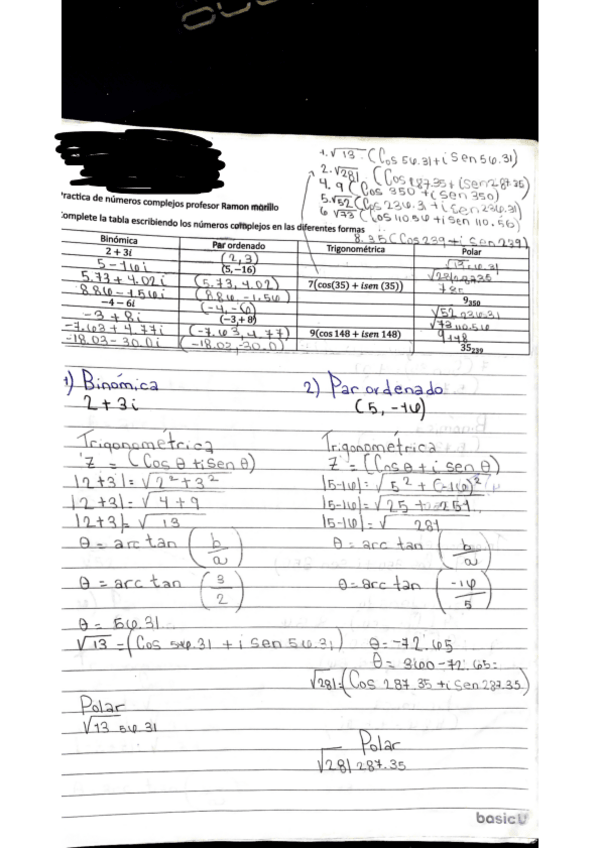 1. √13 (Cos 56.31 + i Sen 56.31)
2. √281 (Cos 287.35 + i Sen 287.35)
4. 9 (Cos 350 + i Sen 350)
5. √52 (Cos 236.31 + i Sen 236.31)
6 √73 (Cos 110.56 + i Sen 110.56)
8. 35 (Cos 239 + i Sen 239)
Practica de números complejos profesor Ramon morillo
Complete la tabla escribiendo los números complejos en las diferentes formas
Binómica Par ordenado Trigonométrica Polar
2 + 3i (2, 3) √13 56.31
5 - 16i (5, −16) √281 287.35
5.73 + 4.02i (5.73, 4.02) 7(cos(35) + isen (35)) 7 35
8.86 - 1.56i (8.86 - 1.56) 9₃₅₀
−4 − 6i (-4, -6) √52 236.31
-3 + 8i (−3, +8) √73 110.56
-7.63 + 4.77i (-7.63, 4.77) 9(cos 148 + isen 148) 9 148
-18.03 - 30.0i (-18.02, -30.0) 35₂₃₉
1) Binómica 2) Par ordenado
2 + 3i (5, -16)
Trigonométrica Trigonométrica
Z = (Cos θ + i sen θ) Z = (Cos θ + i sen θ)
|2+3| = √2² + 3² |5-16| = √5² + (-16)²
|2+3| = √4 + 9 |5-16| = √25 + 251
|2+3| = √13 |5-16| = √281
θ = arc tan (b/a) θ = arc tan (b/a)
θ = arc tan (3/2) θ = arc tan (-16/5)
θ = 56.31
√13 = (Cos 56.31 + i Sen 56.31) θ = -72.65
θ = 360 - 72.65=
√281 = (Cos 287.35 + i Sen 287.35)
Polar
√13 56.31
Polar
√281 287.35
basic